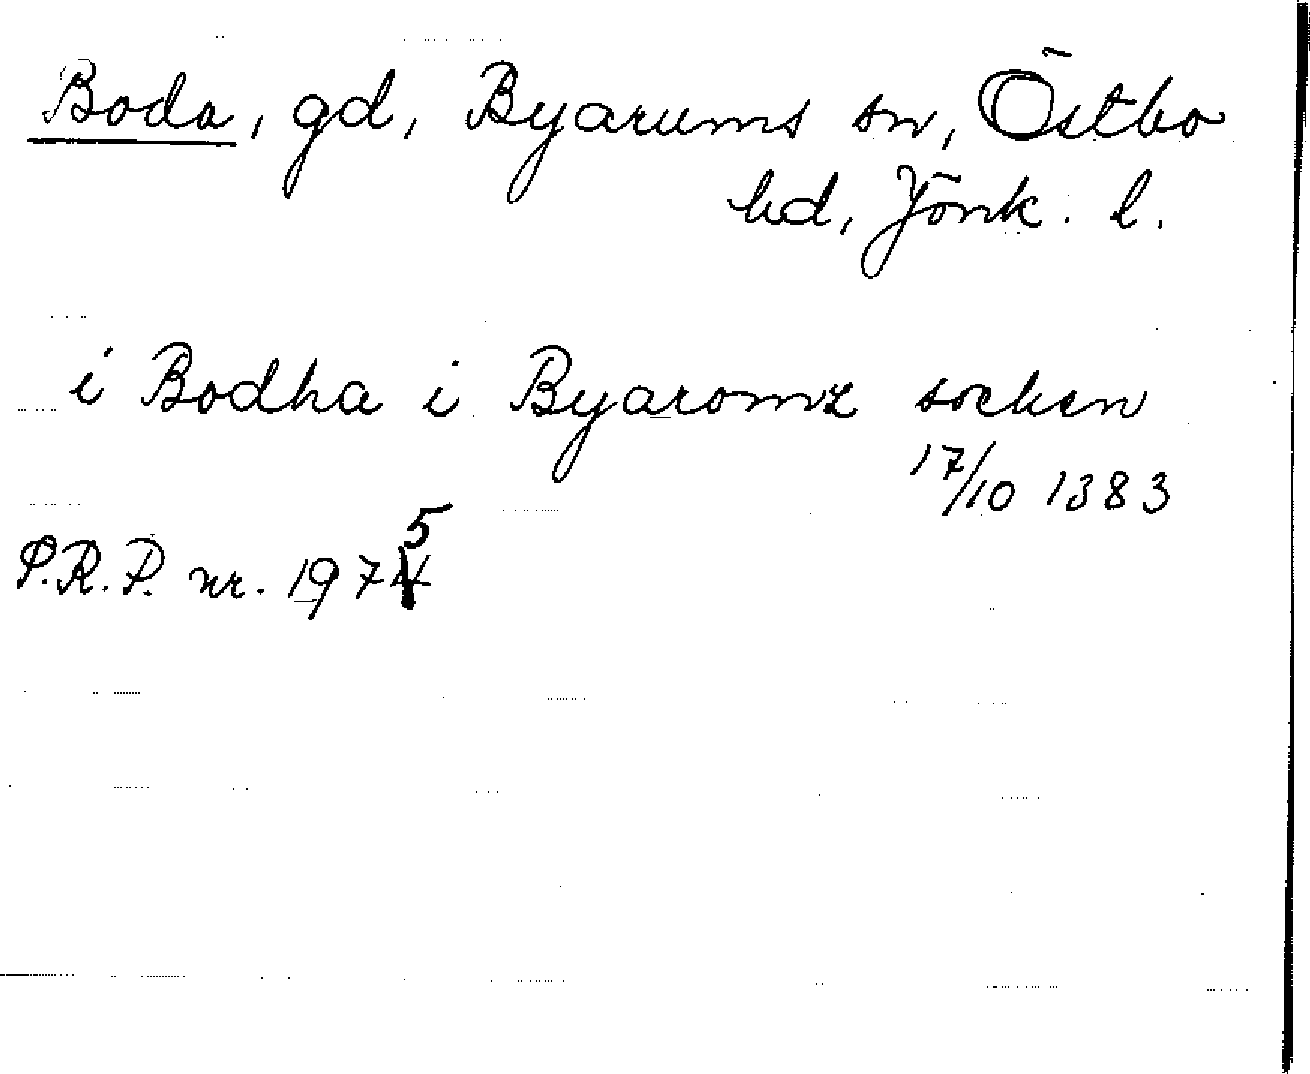 Boda, gd, Byarums sn, Östbo
hd, Jönk. l.
i Bodha i Byaromz sochen
17/10 1383
P.R.P. nr. 1975